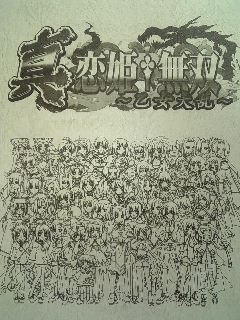 真
恋姫†無双
～乙女大乱～